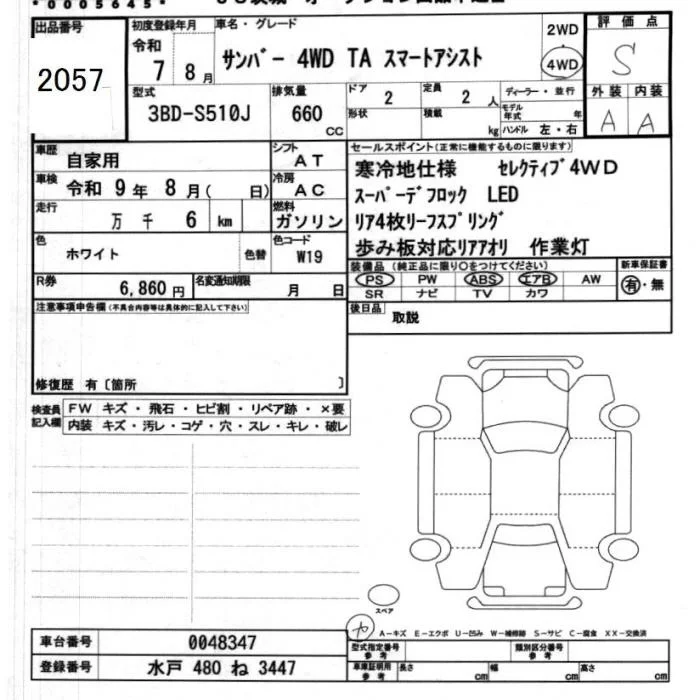 *0005645*
出品番号
2057
初度登録年月
令和
7年8月
車名・グレード
サンバー 4WD TA スマートアシスト
2WD
4WD
評価点
S
外装 内装
A A
型式
3BD-S510J
排気量
660
CC
ドア
2
形状
定員
2人
積載
kg
ディーラー・並行
モデル年式 年
ハンドル 左・右
車歴
自家用
シフト
AT
車検
令和 9年 8月( 日)
冷房
AC
走行
万 千 6 km
燃料
ガソリン
色
ホワイト
色替
色コード
W19
R券
6,860円
名変通知期限
月 日
セールスポイント(正常に機能するものに限ります)
寒冷地仕様 セレクティブ4WD
スーパーデフロック LED
リア4枚リーフスプリング
歩み板対応リアアオリ 作業灯
装備品(純正品に限り○をつけてください)
PS PW ABS エアB AW
SR ナビ TV カワ
新車保証書
有・無
後日品
取説
注意事項申告欄(不具合内容等は具体的に記入して下さい)
修復歴 有〔箇所 〕
検査員記入欄
FW キズ・飛石・ヒビ割・リペア跡・×要
内装 キズ・汚レ・コゲ・穴・スレ・キレ・破レ
スペア
A－キズ E－エクボ U－凹み W－補修跡 S－サビ C－腐食 XX－交換済
車台番号
0048347
登録番号
水戸 480 ね 3447
型式指定番号
参考
類別区分番号
参考
車庫証明用
参考
長さ cm
幅 cm
高さ cm